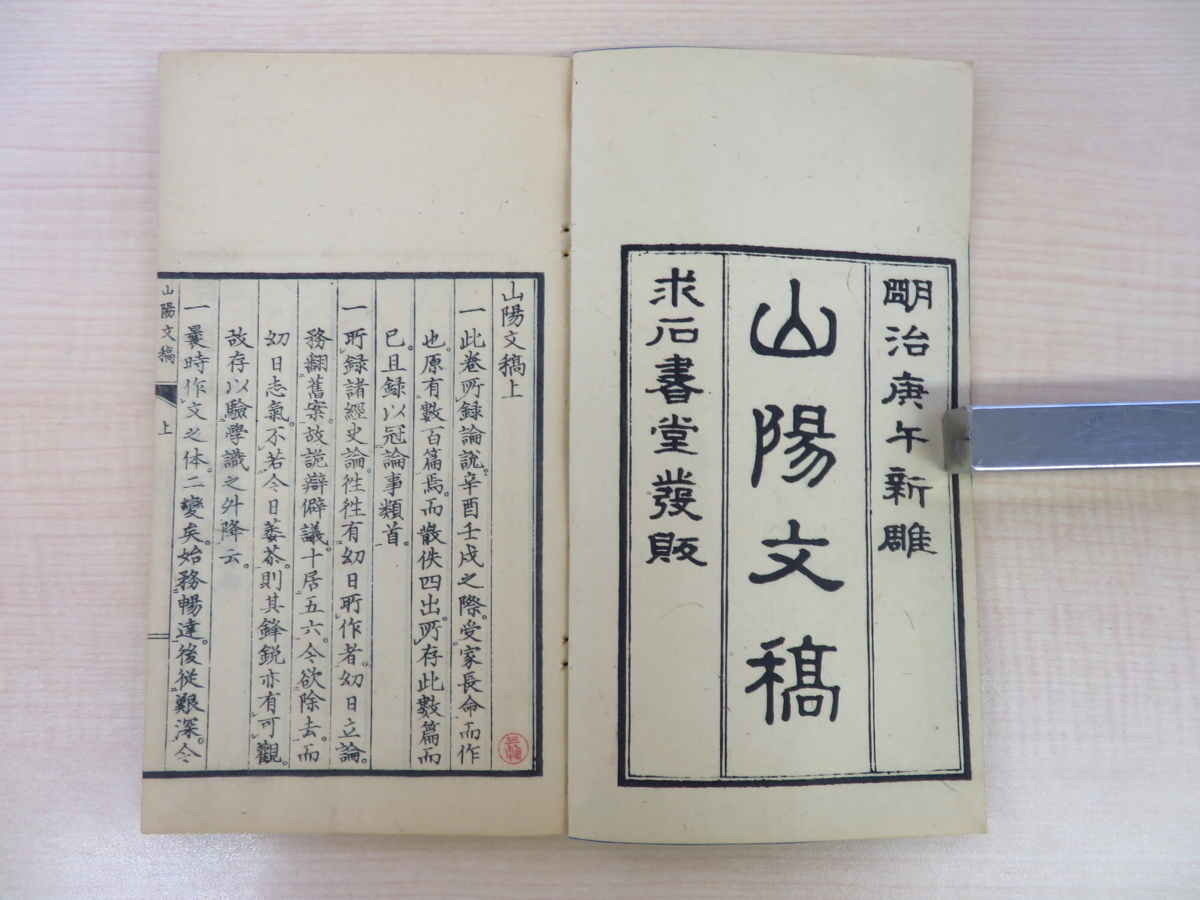 明治庚午新雕
山陽文稿
求石書堂發販
山陽文稿上
一此卷所録論說。辛酉壬戌之際。受家長命而作
也。原有數百篇焉。而散佚四出。所存此數篇而
已。且録以冠論事類首。
一所録諸經史論。徃徃有幼日所作者。幼日立論。
務翻舊案。故詭辯僻議。十居五六。今欲除去。而
幼日志氣。不若今日萎苶。則其鋒鋭亦有可觀。
故存以驗學識之升降云。
一曩時作文之体。二變矣。始務暢達。後從艱深。今
山陽文稿 上